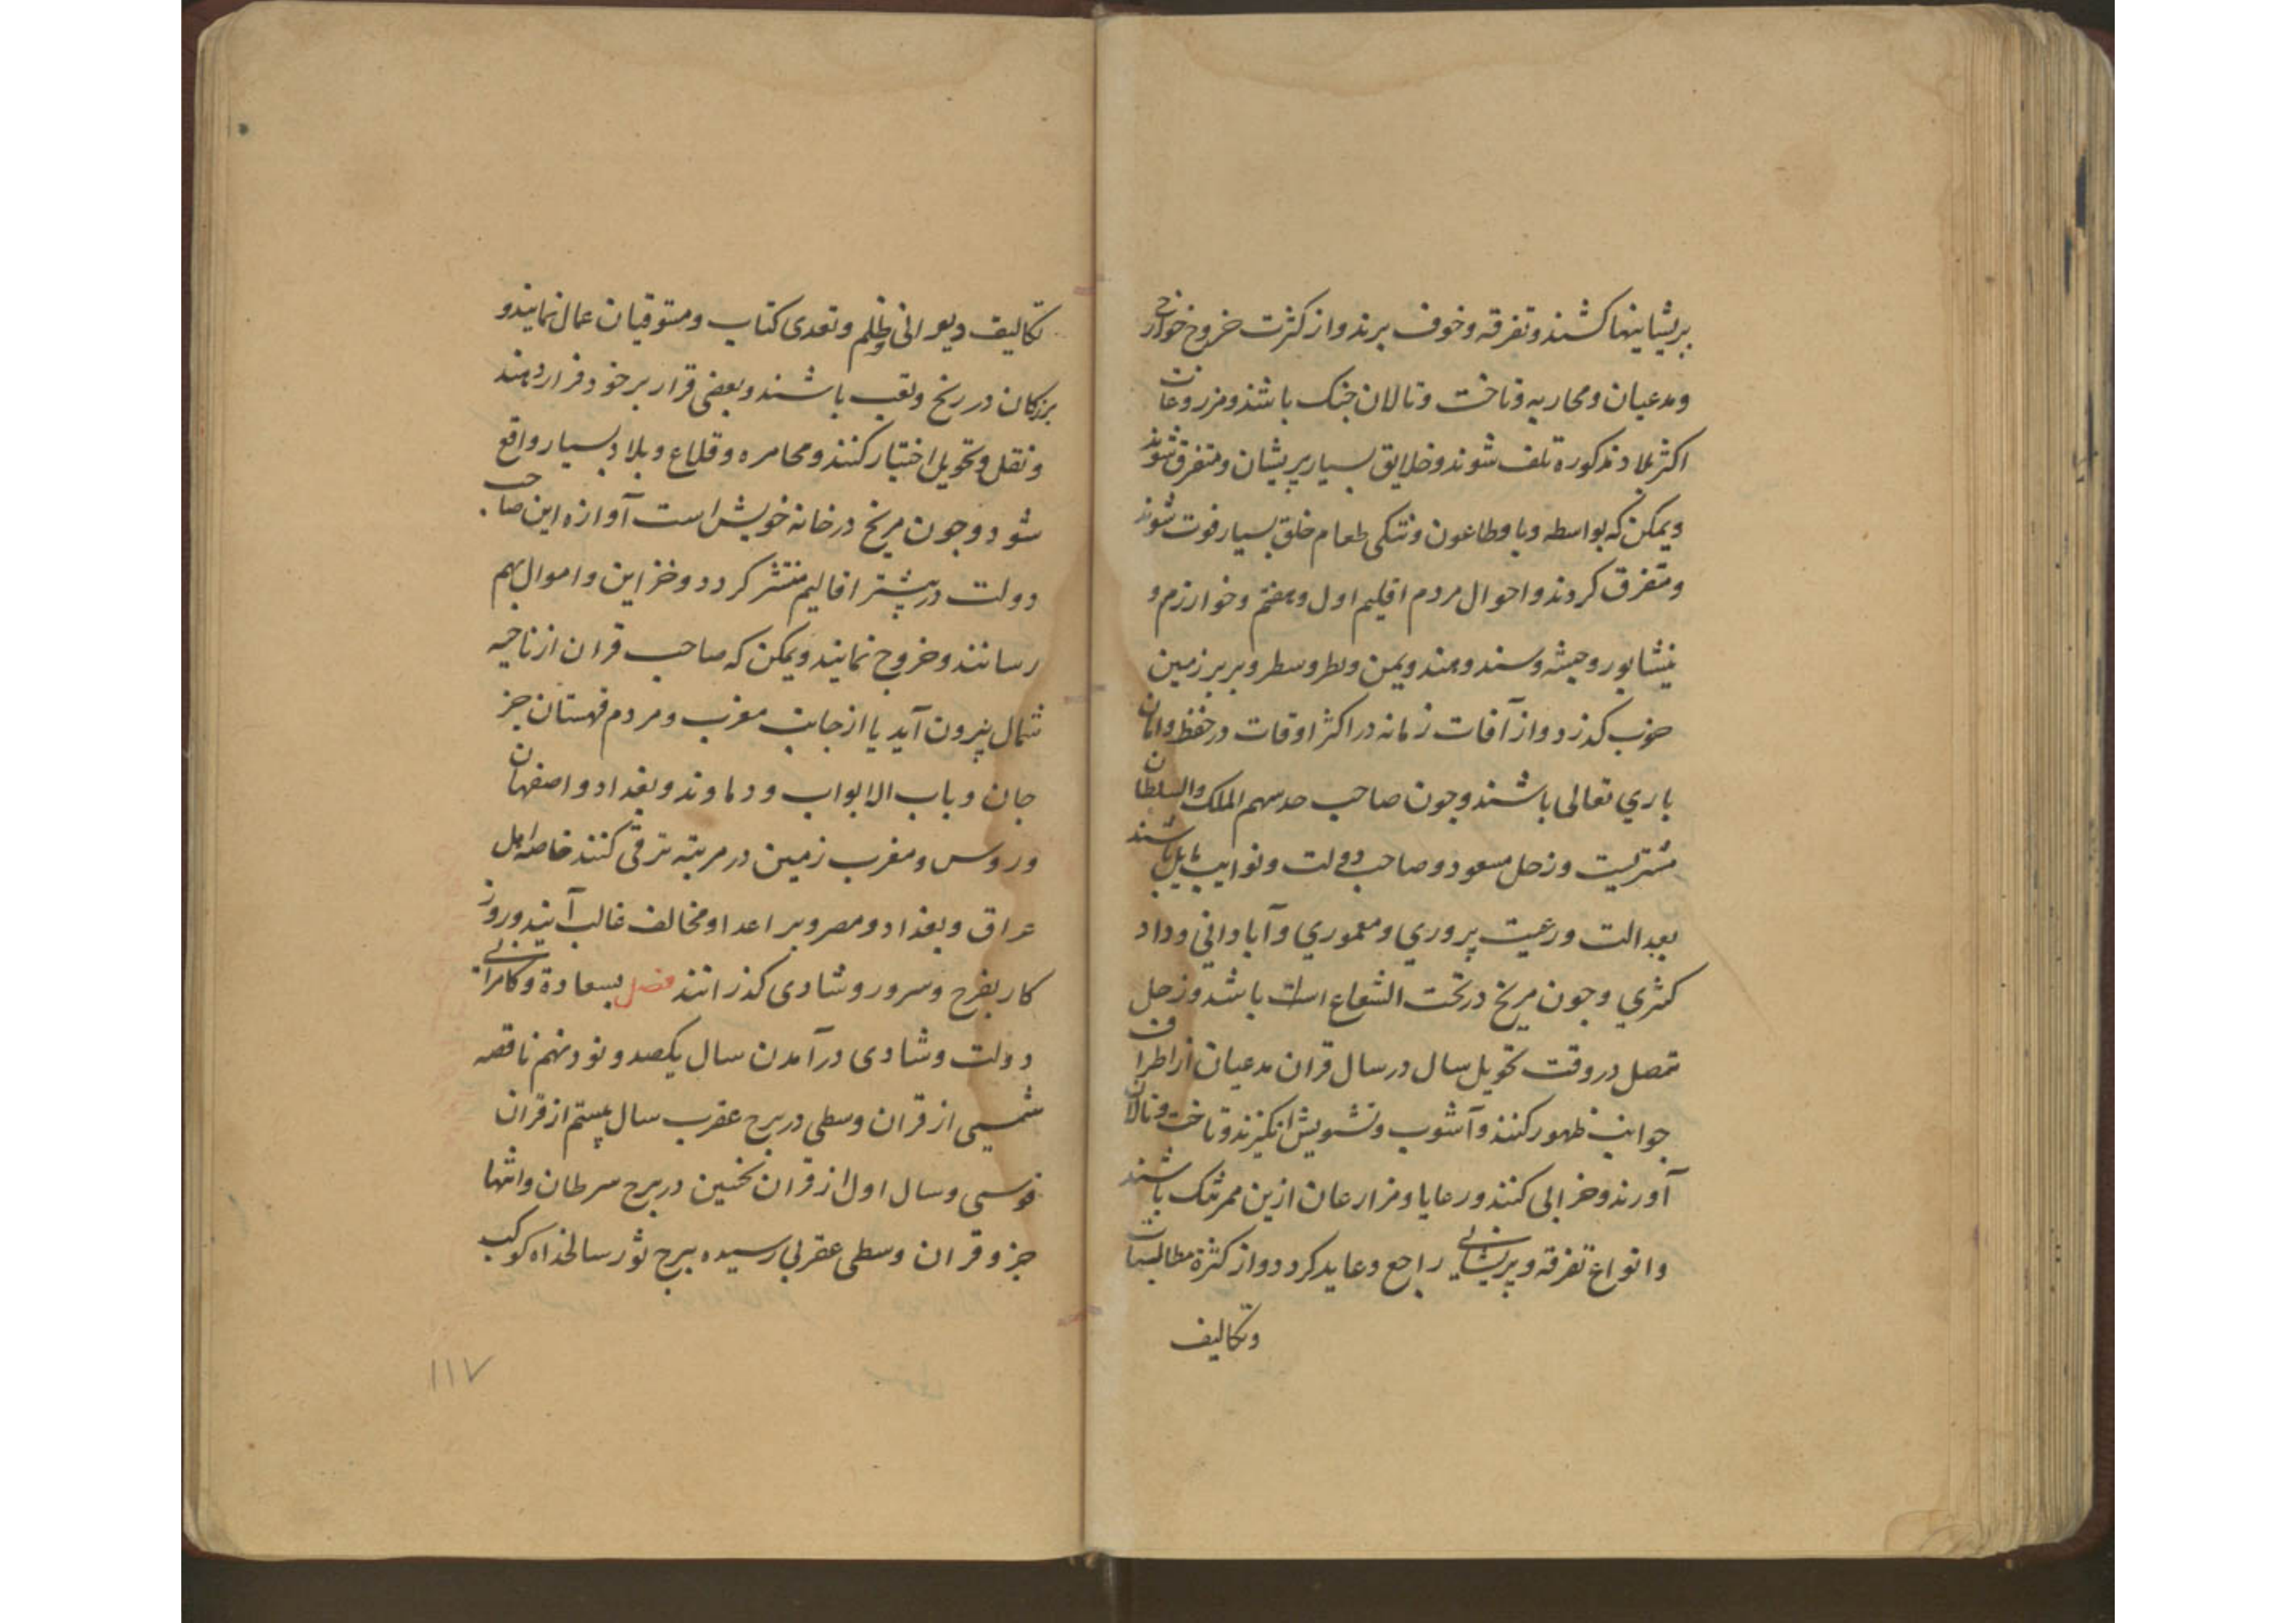 پریشانیها کشند و تفرقه و خوف برند و از کثرت خروج خوارج
و مدعیان و محاربه و تاخت و تالان جنک باشند و مزروعات
اکثر بلاد مذکوره تلف شوند و خلایق بسیار پریشان و متفرق شوند
و یمکن که بواسطه وبا و طاعون و تنکی طعام خلق بسیار فوت شوند
و متفرق کردند و احوال مردم اقلیم اول و هفتم و خوارزم و
نیشابور و حبشه و سند و هند و یمن و بربر زمین
خوب کذرد و از آفات زمانه در اکثر اوقات در حفظ و امان
باری تعالی باشند و جون صاحب حد سهم الملک والسلطان
مشتریست و زحل مسعود و صاحب دولت و نوایب مایل باشند
بعدالت و رعیت پروری و معموری و آبادانی و داد
کثری و جون مریخ در تحت الشعاع است باشد و زحل
متصل در وقت تحویل سال در سال قران مدعیان از اطراف
جوانب ظهور کنند و آشوب و تشویش انکیزند و تاخت و تالان
آورند و خرابی کنند و رعایا و مزارعان ازین ممر تنک باشند
و انواع تفرقه و پریشانی راجع و عاید کردد و از کثرة مطالبات
و تکالیف
تکالیف دیوانی و ظلم و تعدی کتاب و مستوفیان عمال نمایند و
بزرکان در رنج و تعب باشند و بعضی قرار بر خود فرار دهند
و نقل و تحویل اختیار کنند و محامره و قلاع و بلاد بسیار واقع
شود و جون مریخ در خانه خویش است آوازه این صاحب
دولت در بیشتر اقالیم منتشر کردد و خزاین و اموال بهم
رسانند و خروج نمایند و یمکن که صاحب قران از ناحیه
شمال بیرون آید یا از جانب مغرب و مردم قهستان جز
جان و باب الابواب و دماوند و بغداد و اصفهان
و روس و مغرب زمین در مرتبه ترقی کنند خاصه اهل
عراق و بغداد و مصر و بر اعدا و مخالف غالب آیند و روز
کار بفرح و سرور و شادی کذرانند فصل بسعادة و کامرانی
دولت و شادی درآمدن سال یکصد و نود و نهم ناقصه
شمسی از قران وسطی در برج عقرب سال بیستم از قران
قوسی و سال اول از قران نخستین در برج سرطان و انتها
جزو قران وسطی عقربی رسیده ببرج ثور سالخداه کوکب
۱۱۷